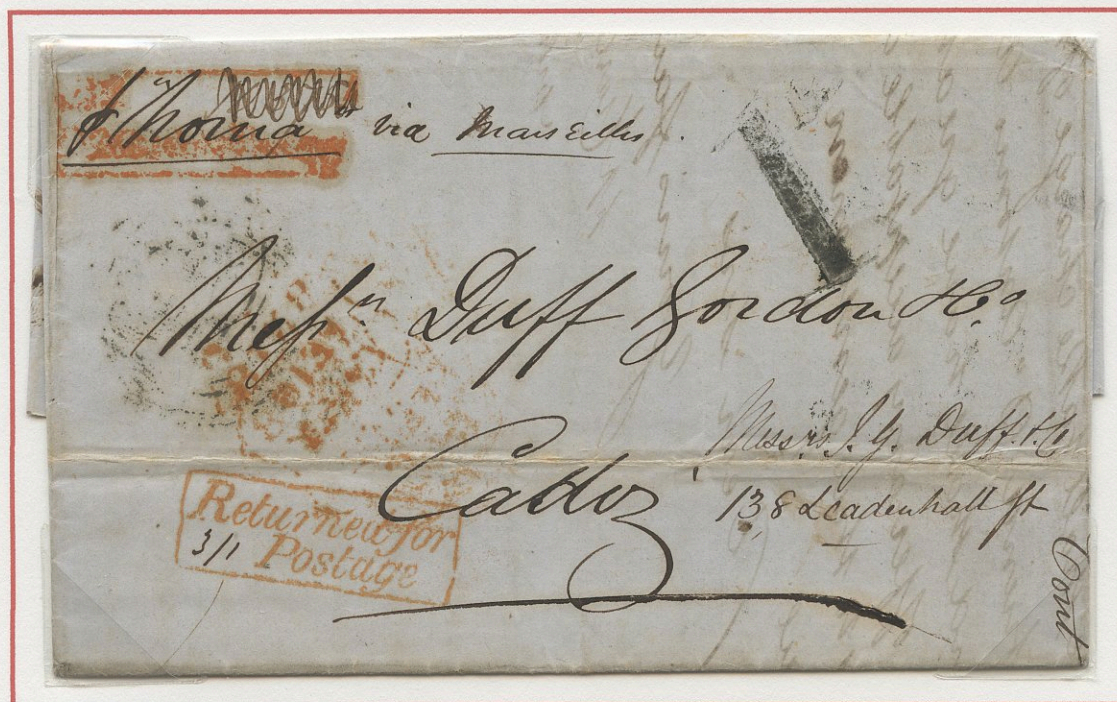 via Marseilles.
Messrs Duff Gordon & Co
Cadiz
Messrs J. G. Duff & Co
138 Leadenhall St
Returned for
3/1 Postage